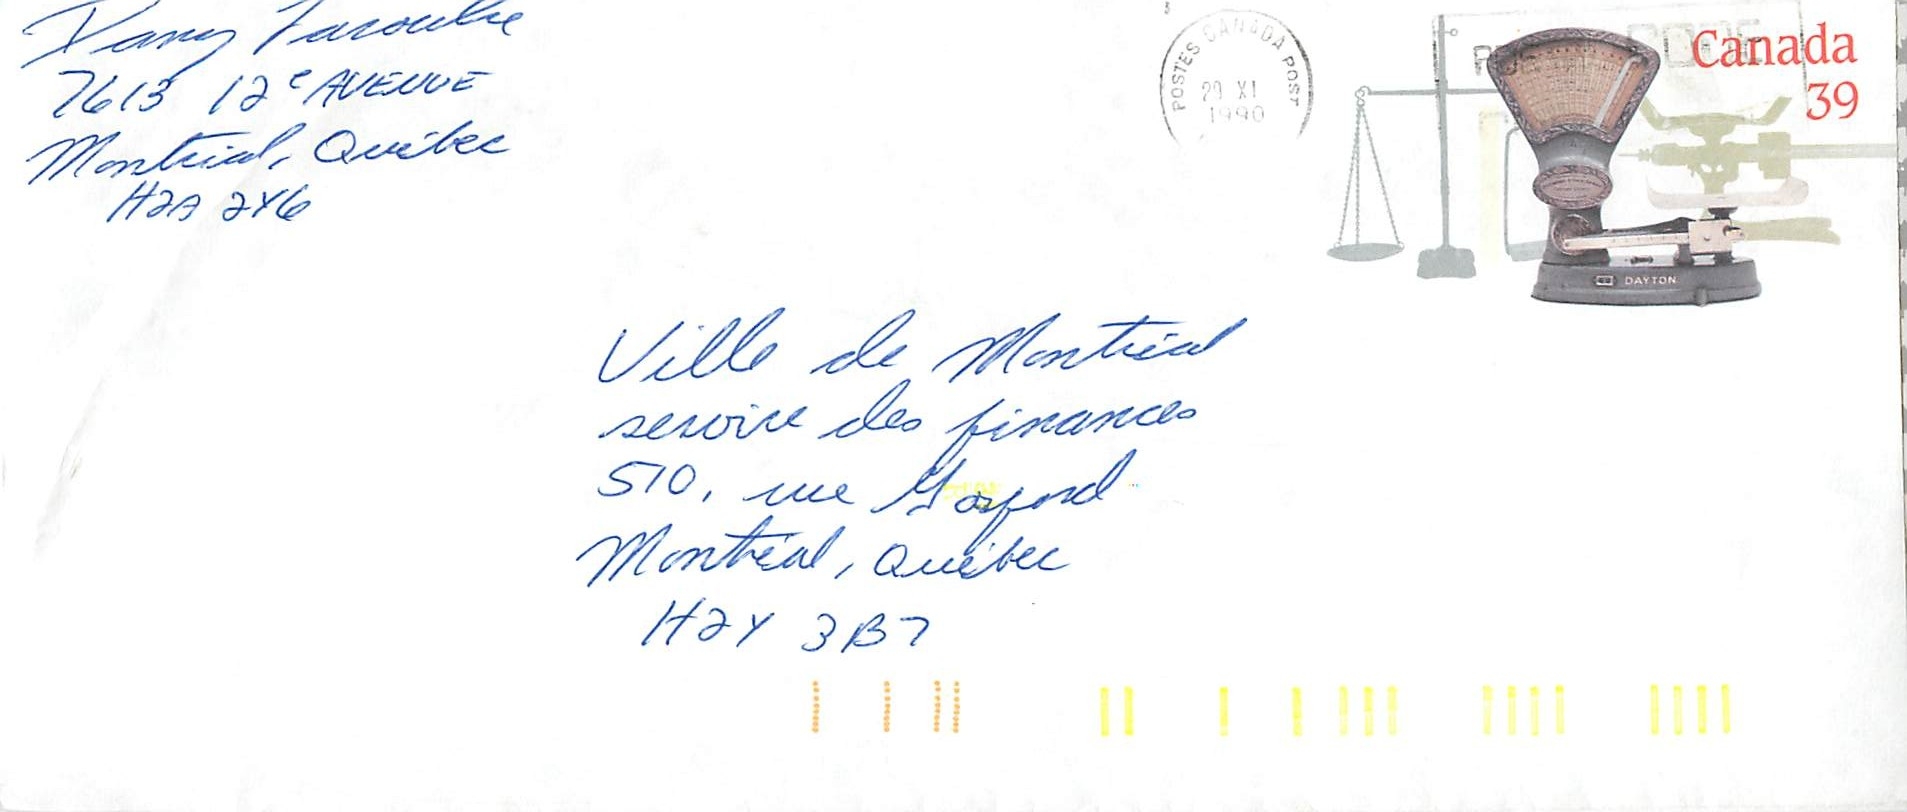 Dany
7613 12e AVENUE
Montréal, Québec
H2A 2Y6
POSTES CANADA POST
XI
1990
Canada
39
DAYTON
Ville de Montréal
service des finances
510, rue Gosford
Montréal, Québec
H2Y 3B7